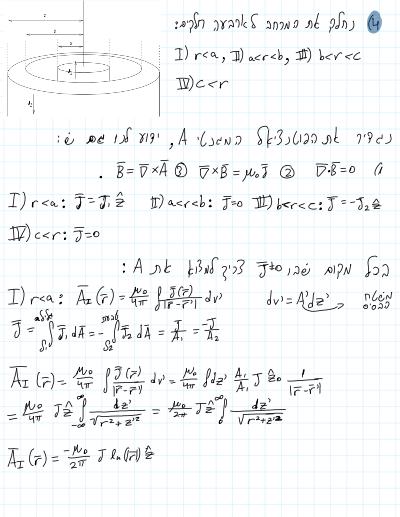 4) נחלק את המרחב לארבעה חלקים:
I) r<a, II) a<r<b, III) b<r<c
IV) c<r
נגדיר את הפוטנציאל המגנטי A, ידוע לנו גם ש:
1) ∇·B̄=0 ② ∇×B̄=μ₀J̄ ③ B̄=∇×Ā .
I) r<a: J̄=J₁ẑ II) a<r<b: J̄=0 III) b<r<c: J̄=-J₂ẑ
IV) c<r: J̄=0
בכל מקום שבו J̄≠0 צריך למצוא את A:
I) r<a: Ā_I(r̄)=μ₀/4π ∫ J̄(r̄)/|r̄-r̄'| dv' dv'=A'dz' שטח הבסיס
J̄=∫_{S₁} J̄₁dA=-∫_{S₂} J̄₂dA=J/A₁=-J/A₂
Ā_I(r̄)=μ₀/4π ∫ J̄(r̄)/|r̄-r̄'| dv'=μ₀/4π ∫dz' A₁/A₁ J ẑ₀ 1/|r̄-r̄'|
=μ₀/4π Jẑ ∫_{-∞}^{∞} dz'/√(r²+z'²)=μ₀/2π Jẑ ∫_0^{∞} dz'/√(r²+z'²)
Ā_I(r̄)=-μ₀/2π J ln(|r̄|)ẑ